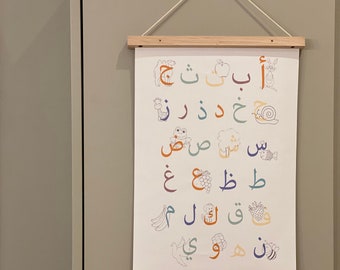 أ ب ت ث ج
ح خ د ذ ر ز
س ش ص ض
ط ظ ع غ
ف ق ك ل م
ن ه و ي